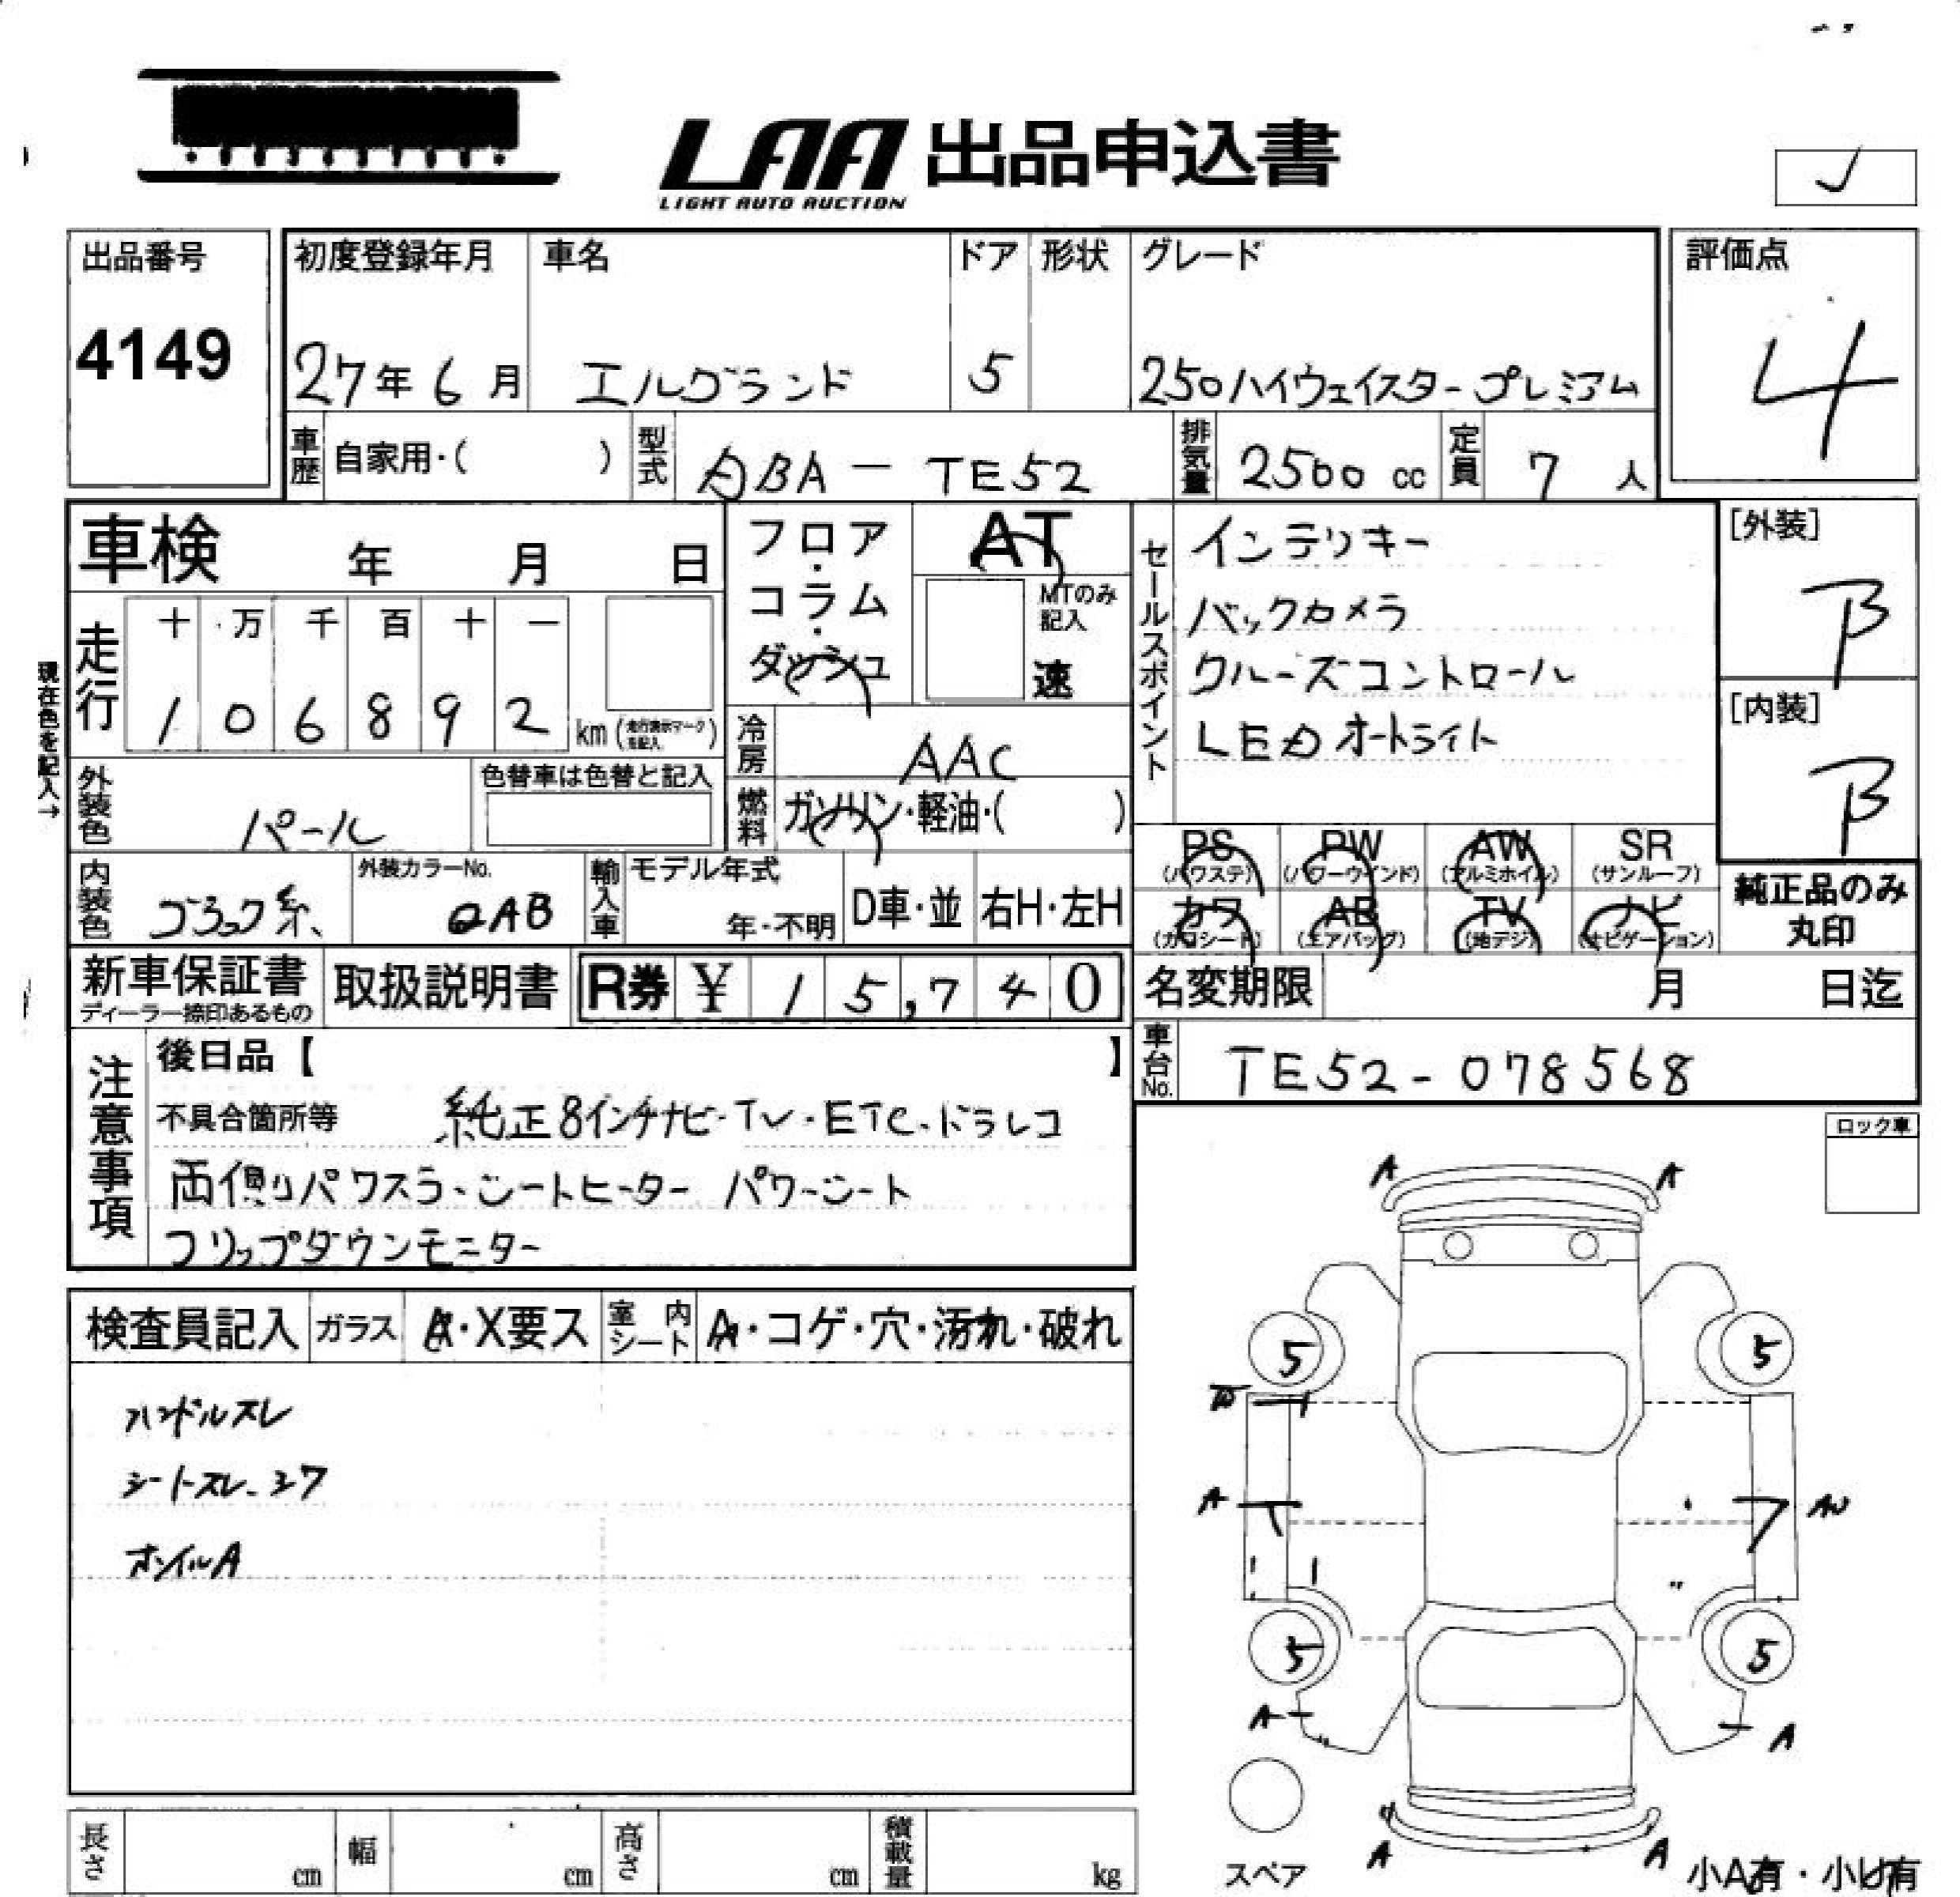 LAA 出品申込書
LIGHT AUTO AUCTION
出品番号
4149
初度登録年月
27年 6月
車名
エルグランド
ドア
5
形状
グレード
250ハイウェイスタープレミアム
評価点
4
車歴
自家用・( )
型式
ABA-TE52
排気量
2500 cc
定員
7 人
車検 年 月 日
フロア・コラム・ダッシュ
AT
MTのみ記入
速
セールスポイント
インテリキー
バックカメラ
クルーズコントロール
LEDオートライト
[外装]
B
[内装]
B
現在色を記入→
走行
十 万 千 百 十 一
1 0 6 8 9 2 km
冷房
AAC
燃料
ガソリン・軽油・( )
外装色
パール
色替車は色替と記入
内装色
ブラック系
外装カラーNo.
QAB
輸入車
モデル年式
年・不明
D車・並
右H・左H
PS (パワステ)
PW (パワーウインド)
AW (アルミホイル)
SR (サンルーフ)
カワ (カワシート)
AB (エアバッグ)
TV (地デジ)
ナビ (ナビゲーション)
純正品のみ
丸印
新車保証書
ディーラー捺印あるもの
取扱説明書
R券 ¥ 1 5,7 4 0
名変期限 月 日迄
車台No.
TE52-078568
注意事項
後日品【 】
不具合箇所等 純正8インチナビ・TV・ETC・ドラレコ
両側パワスラ・シートヒーター パワーシート
フリップダウンモニター
ロック車
検査員記入
ガラス
A・X要ス
室内シート
A・コゲ・穴・汚れ・破れ
ハンドルスレ
シートスレ
ホイルA
A A
5 5
W
A AW
5 5
A A
A A
スペア
小A有・小U有
長さ cm
幅 cm
高さ cm
積載量 kg